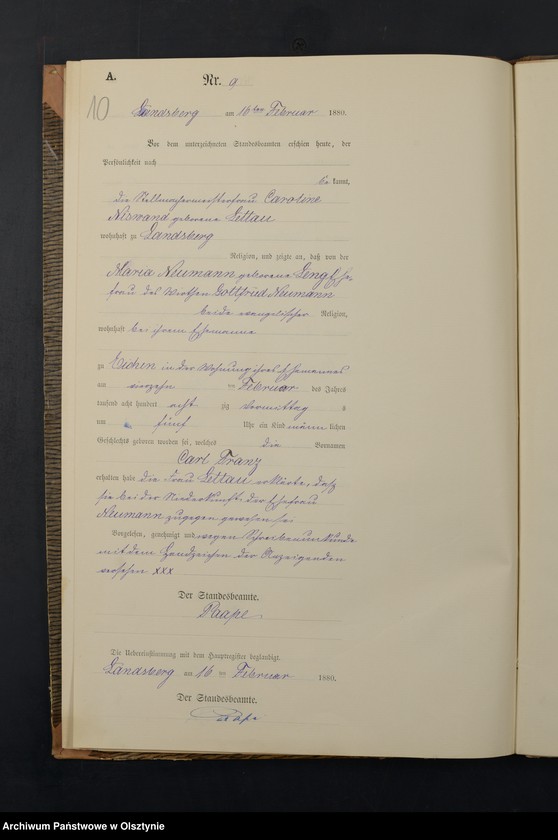 A.
Nr. 9
10
Landsberg am 16ten Februar 1880.
Vor dem unterzeichneten Standesbeamten erschien heute, der
Persönlichkeit nach
be kannt,
die Stellmachermeisterfrau Caroline
geborene Littau
wohnhaft zu Landsberg
Religion, und zeigte an, daß von der
Maria Neumann geborene Lengk Ehe-
frau des Wirthen Gottfried Neumann
beide evangelischer Religion,
wohnhaft bei ihrem Ehemanne
zu Eichen in der Wohnung ihres Ehemannes
am vierzehn ten Februar des Jahres
tausend acht hundert acht zig Vormittag s
um fünf Uhr ein Kind männ lichen
Geschlechts geboren worden sei, welches die Vornamen
Carl Franz
erhalten habe die Frau Littau erklärte, daß
sie bei der Niederkunft der Ehefrau
Neumann zugegen gewesen sei
Vorgelesen, genehmigt und wegen Schreibensunkunde
mit dem Handzeichen der Anzeigenden
versehen xxx
Der Standesbeamte.
Paape
Die Uebereinstimmung mit dem Hauptregister beglaubigt.
Landsberg am 16 ten Februar 1880.
Der Standesbeamte.
Paape
Archiwum Państwowe w Olsztynie